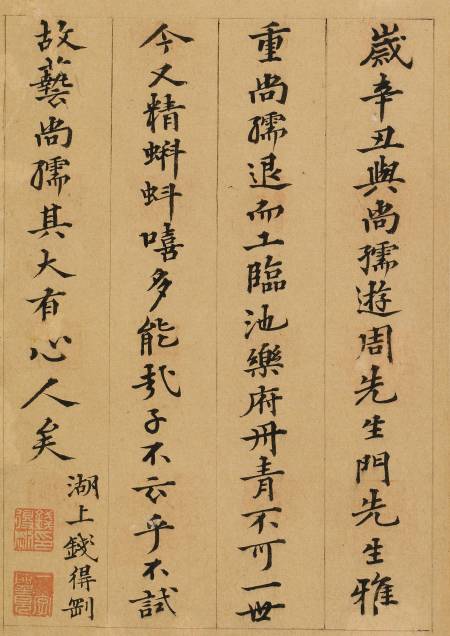 歲辛丑與尚孺遊周先生門先生雅
重尚孺退而工臨池樂府丹青不可一世
今又精蝌蚪嘻多能哉子不云乎不試
故藝尚孺其大有心人矣
湖上錢得